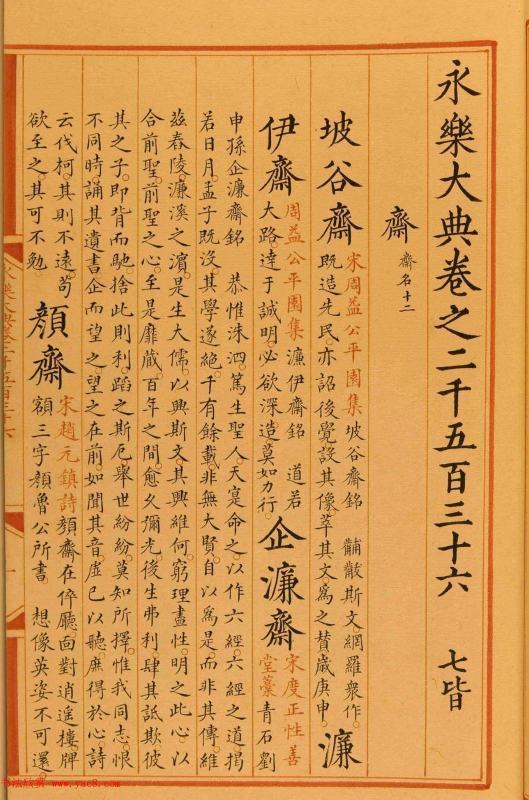 永樂大典卷之二千五百三十六　七皆
齋　齋名十二
坡谷齋　宋周益公平園集坡谷齋銘　黼黻斯文網羅衆作
既造先民亦詔後覺設其像萃其文爲之賛歲庚申　濂
伊齋　周益公平園集濂伊齋銘　道若
大路達于誠明必欲深造莫如力行　企濂齋　宋度正性善
堂藁青石劉
申孫企濂齋銘　恭惟洙泗篤生聖人天寔命之以作六經六經之道揭
若日月孟子既没其學遂絶千有餘載非無大賢自以爲是而非其傳維
兹舂陵濂溪之濵是生大儒以興斯文其興維何窮理盡性明之此心以
合前聖前聖之心至是靡蔵百年之間愈久彌光後生弗利肆其詆欺彼
其之子即背而馳捨此則利蹈之斯厄舉世紛紛莫知所擇惟我同志恨
不同時誦其遺書企而望之望之在前如聞其音虚已以聽庶得於心詩
云伐柯其則不遠苟
欲至之其可不勉　顔齋　宋趙元鎮詩顔齋在倅廳面對逍遥樓牌
額三字顔魯公所書　想像英姿不可還
永樂大典卷二千五百三十六
书法欣赏 www.yac8.com